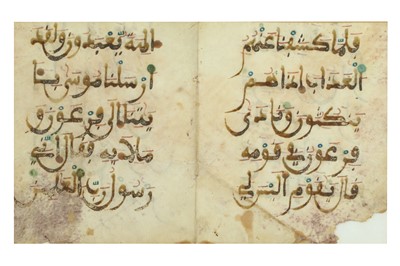 فلما كشفنا عنهم
العذاب اذا هم
ينكثون ونادى
فرعون في قومه
قال يقوم اليس لي
الهة يعبدون ولقد
ارسلنا موسى با
يتنا الى فرعون و
ملايه فقال اني
رسول رب العلمين